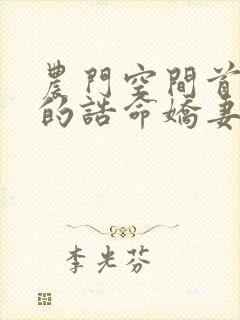 農門空間首
的誥命嬌妻
李光芬